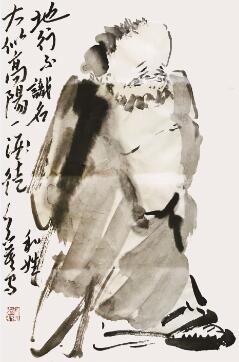 地行不識名
和姓
大似高陽一酒徒